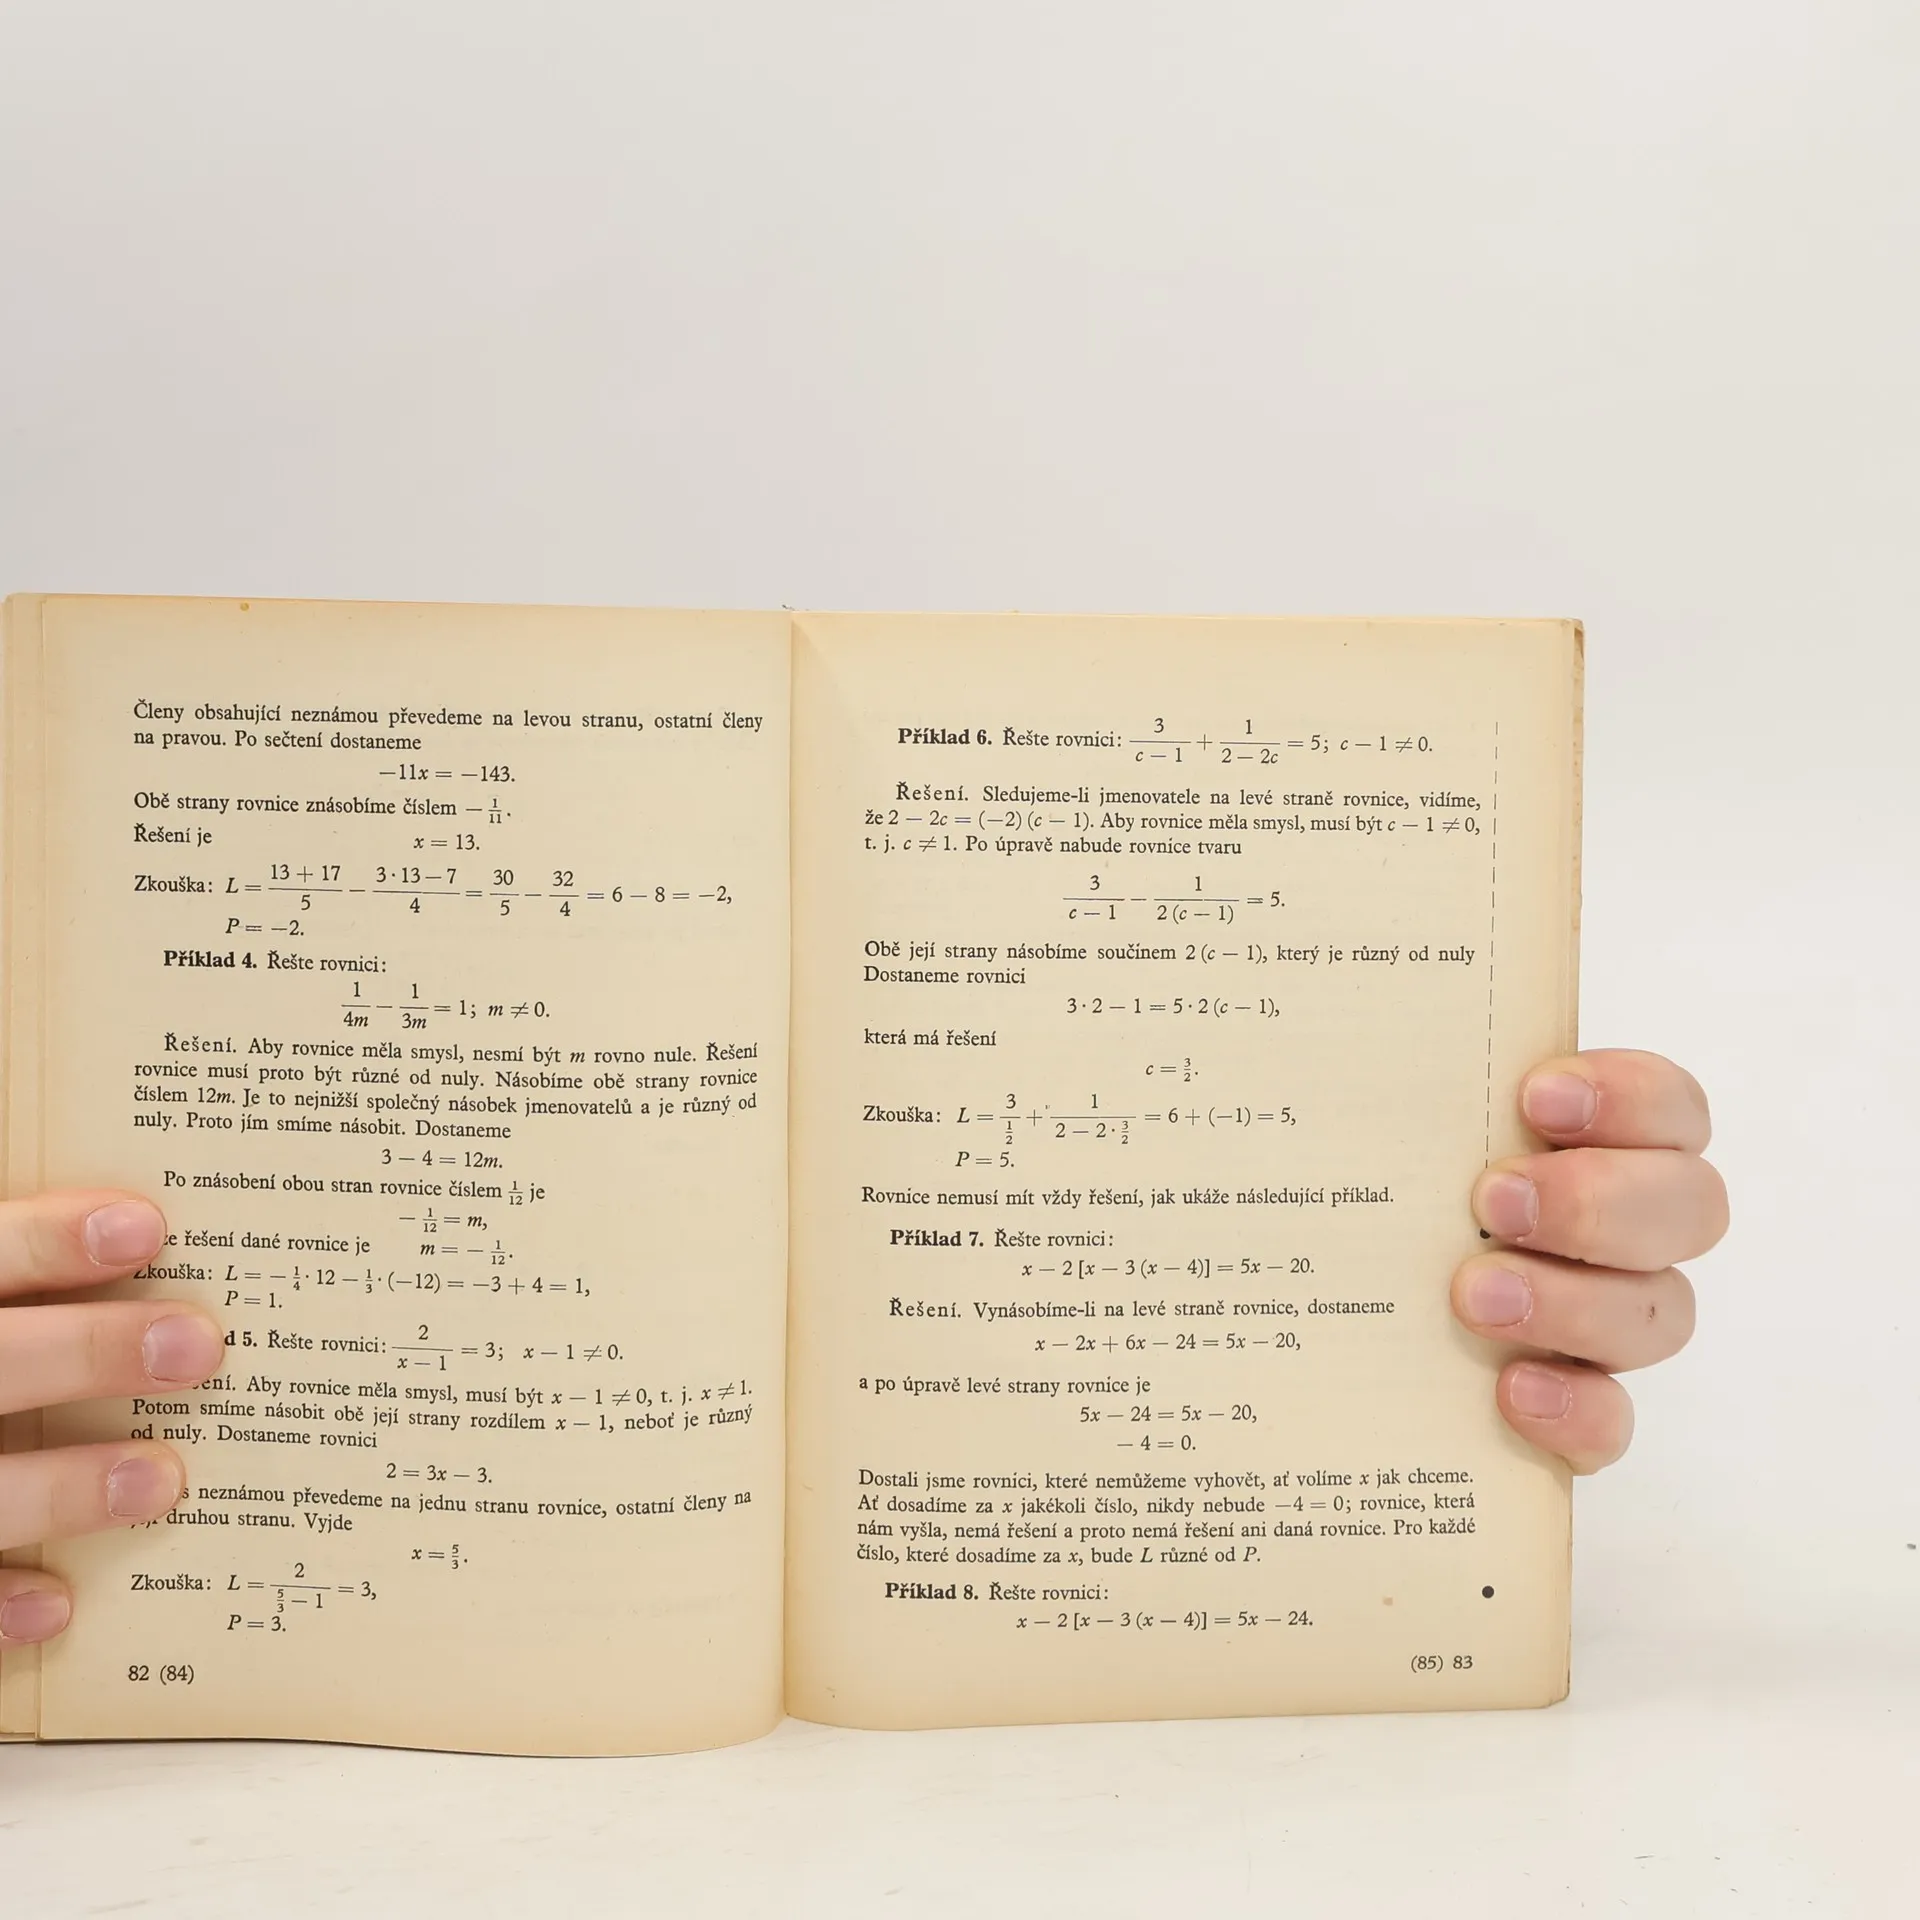 Členy obsahující neznámou převedeme na levou stranu, ostatní členy
na pravou. Po sečtení dostaneme
−11x = −143.
Obě strany rovnice znásobíme číslem − 1/11.
Řešení je x = 13.
Zkouška: L = (13 + 17)/5 − (3·13 − 7)/4 = 30/5 − 32/4 = 6 − 8 = −2,
P = −2.
Příklad 4. Řešte rovnici:
1/4m − 1/3m = 1; m ≠ 0.
Řešení. Aby rovnice měla smysl, nesmí být m rovno nule. Řešení
rovnice musí proto být různé od nuly. Násobíme obě strany rovnice
číslem 12m. Je to nejnižší společný násobek jmenovatelů a je různý od
nuly. Proto jím smíme násobit. Dostaneme
3 − 4 = 12m.
Po znásobení obou stran rovnice číslem 1/12 je
− 1/12 = m,
že řešení dané rovnice je m = − 1/12.
Zkouška: L = − 1/4 · 12 − 1/3 · (−12) = −3 + 4 = 1,
P = 1.
d 5. Řešte rovnici: 2/(x − 1) = 3; x − 1 ≠ 0.
ení. Aby rovnice měla smysl, musí být x − 1 ≠ 0, t. j. x ≠ 1.
Potom smíme násobit obě její strany rozdílem x − 1, neboť je různý
od nuly. Dostaneme rovnici
2 = 3x − 3.
s neznámou převedeme na jednu stranu rovnice, ostatní členy na
její druhou stranu. Vyjde
x = 5/3.
Zkouška: L = 2/(5/3 − 1) = 3,
P = 3.
82 (84)
Příklad 6. Řešte rovnici: 3/(c − 1) + 1/(2 − 2c) = 5; c − 1 ≠ 0.
Řešení. Sledujeme-li jmenovatele na levé straně rovnice, vidíme,
že 2 − 2c = (−2) (c − 1). Aby rovnice měla smysl, musí být c − 1 ≠ 0,
t. j. c ≠ 1. Po úpravě nabude rovnice tvaru
3/(c − 1) − 1/(2 (c − 1)) = 5.
Obě její strany násobíme součinem 2 (c − 1), který je různý od nuly
Dostaneme rovnici
3 · 2 − 1 = 5 · 2 (c − 1),
která má řešení
c = 3/2.
Zkouška: L = 3/(1/2) + 1/(2 − 2 · 3/2) = 6 + (−1) = 5,
P = 5.
Rovnice nemusí mít vždy řešení, jak ukáže následující příklad.
Příklad 7. Řešte rovnici:
x − 2 [x − 3 (x − 4)] = 5x − 20.
Řešení. Vynásobíme-li na levé straně rovnice, dostaneme
x − 2x + 6x − 24 = 5x − 20,
a po úpravě levé strany rovnice je
5x − 24 = 5x − 20,
− 4 = 0.
Dostali jsme rovnici, které nemůžeme vyhovět, ať volíme x jak chceme.
Ať dosadíme za x jakékoli číslo, nikdy nebude −4 = 0; rovnice, která
nám vyšla, nemá řešení a proto nemá řešení ani daná rovnice. Pro každé
číslo, které dosadíme za x, bude L různé od P.
Příklad 8. Řešte rovnici:
x − 2 [x − 3 (x − 4)] = 5x − 24.
(85) 83